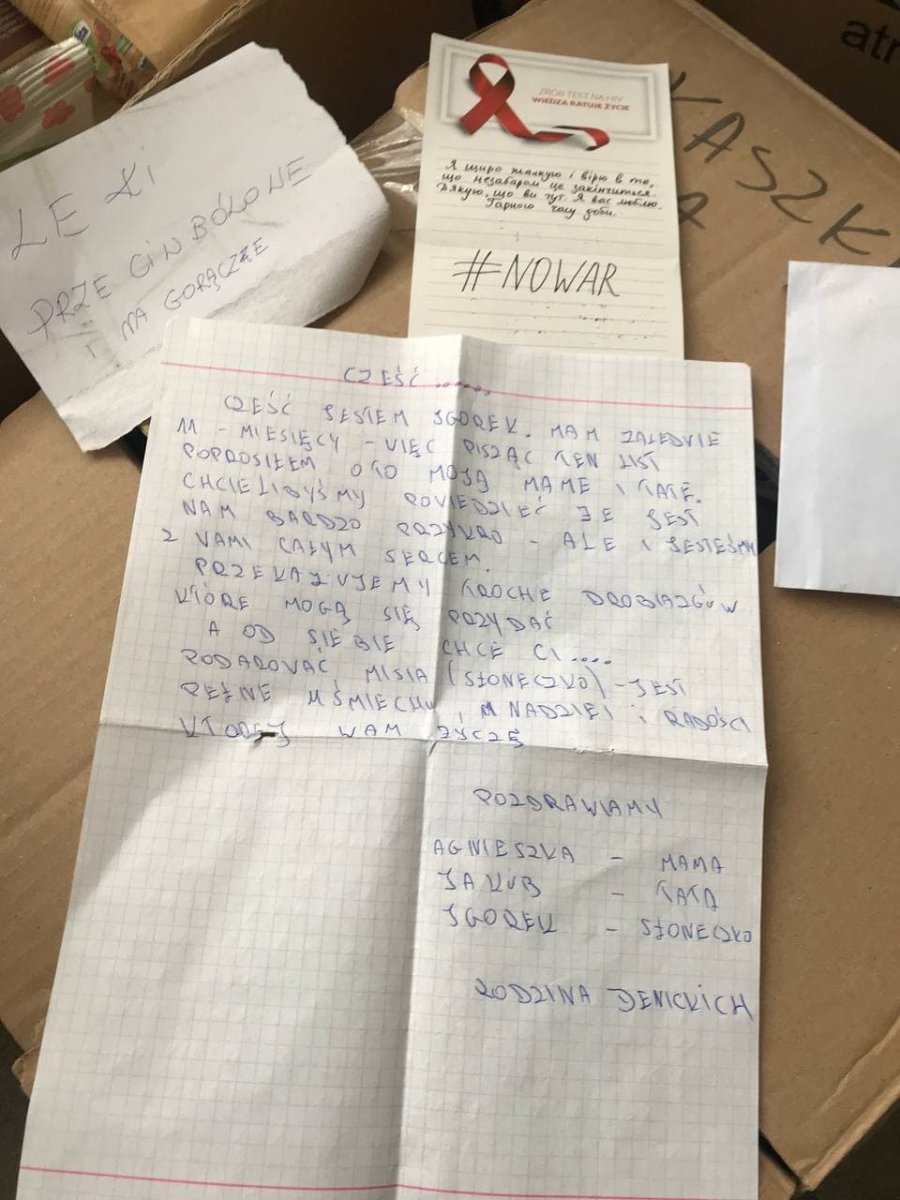 atm
KASZK
A
LEKI
PRZECIWBÓLOWE
I NA GORĄCZĘ
ZRÓB TEST NA HIV
WIEDZA RATUJE ŻYCIE
Я щиро жалкую і вірю в те,
що незабаром це закінчиться.
Дякую, що ви тут. Я вас люблю.
Гарного часу доби.
#NOWAR
CZEŚĆ ......
CZEŚĆ JESTEM IGOREK. MAM ZALEDWIE
11 - MIESIĘCY - WIĘC PISZĄC TEN LIST
POPROSIŁEM OTO MOJĄ MAMĘ I TATĘ.
CHCIELIBYŚMY POWIEDZIEĆ ŻE JEST
NAM BARDZO PRZYKRO - ALE I JESTEŚMY
Z WAMI CAŁYM SERCEM.
PRZEKAZUJEMY TROCHE DROBIAZGÓW
KTÓRE MOGĄ SIĘ PRZYDAĆ
A OD SIEBIE CHCE CI ....
PODAROWAĆ MISIA (SŁONECZKO) - JEST
PEŁNE UŚMIECHU, NADZIEI i RADOŚCI
KTOREJ WAM ŻYCZĘ
POZDRAWIAMY
AGNIESZKA - MAMA
JAKUB - TATA
IGOREK - SŁONECZKO
RODZINA DENICKICH